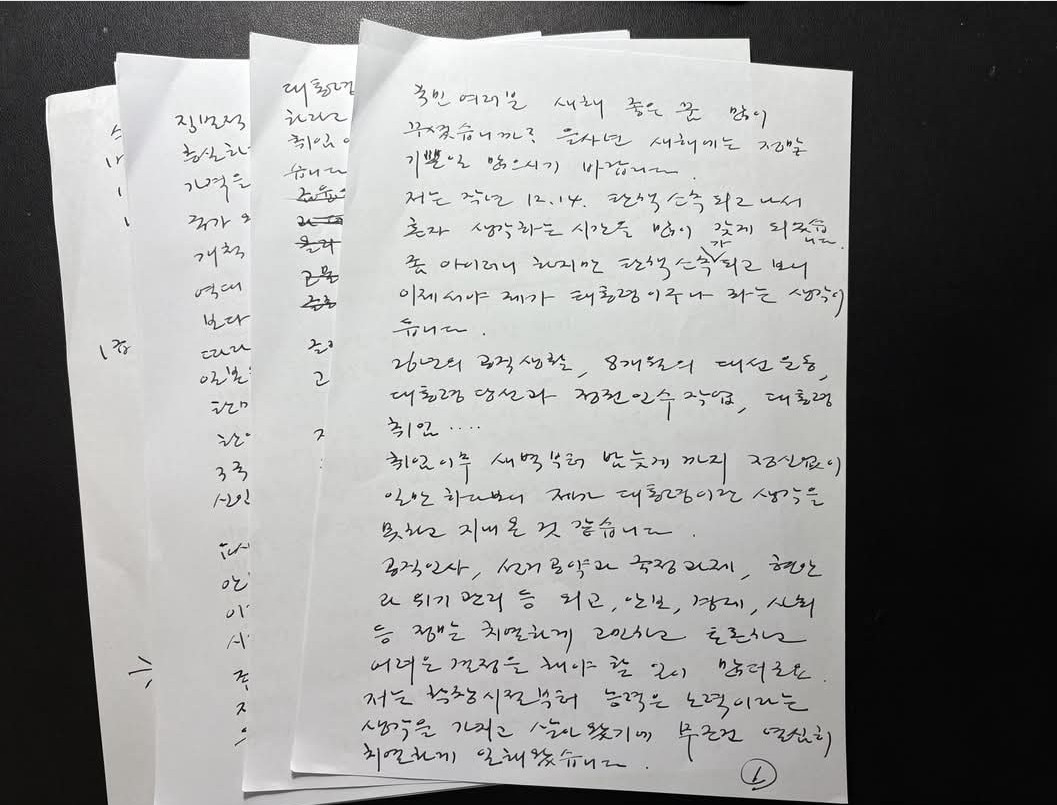 국민 여러분 새해 좋은 꿈 많이
꾸셨습니까? 을사년 새해에는 정말
기쁜일 많으시기 바랍니다.
저는 작년 12.14. 탄핵 소추 되고 나서
혼자 생각하는 시간을 많이 갖게 되었습니다.
좀 아이러니 하지만 탄핵 소추가 되고 보니
이제서야 제가 대통령이구나 하는 생각이
듭니다.
26년의 공직생활, 8개월의 대선 운동,
대통령 당선과 정권 인수 작업, 대통령
취임····
취임이후 새벽부터 밤늦게 까지 정신없이
일만 하다보니 제가 대통령이란 생각을
못하고 지내 온 것 같습니다.
공직인사, 선거 공약과 국정과제, 현안
과 위기 관리 등 외교, 안보, 경제, 사회
등 정말 치열하게 고민하고 토론하고
어려운 결정을 해야 할 일이 많더군요.
저는 학창시절부터 능력은 노력이라는
생각을 가지고 살아 왔기에 무조건 열심히
치열하게 일해왔습니다.
1
대통령
하라고
취임
습니다
집
충실하
가격을
국가
개척
역대
보다
따라
일본
3국